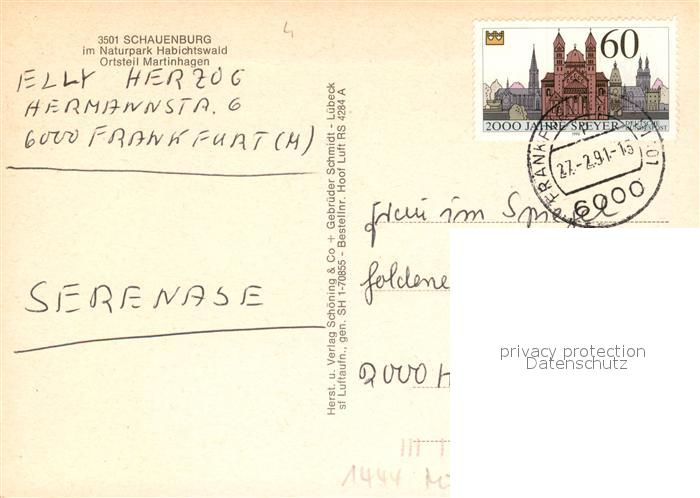 3501 SCHAUENBURG
im Naturpark Habichtswald
Ortsteil Martinhagen
4
ELLY HERZOG
HERMANNSTR. 6
6000 FRANKFURT (M)
SERENASE
Herst. u. Verlag Schöning & Co + Gebrüder Schmidt - Lübeck
sf Luftaufn., gen. SH 1-70855 - Bestellnr. Hoof Luft RS 4284 A
60
2000 JAHRE SPEYER
DEUTSCHE BUNDESPOST
27.-2.91-15
6000
im Spiegel
goldene
2000 H
privacy protection
Datenschutz
1444